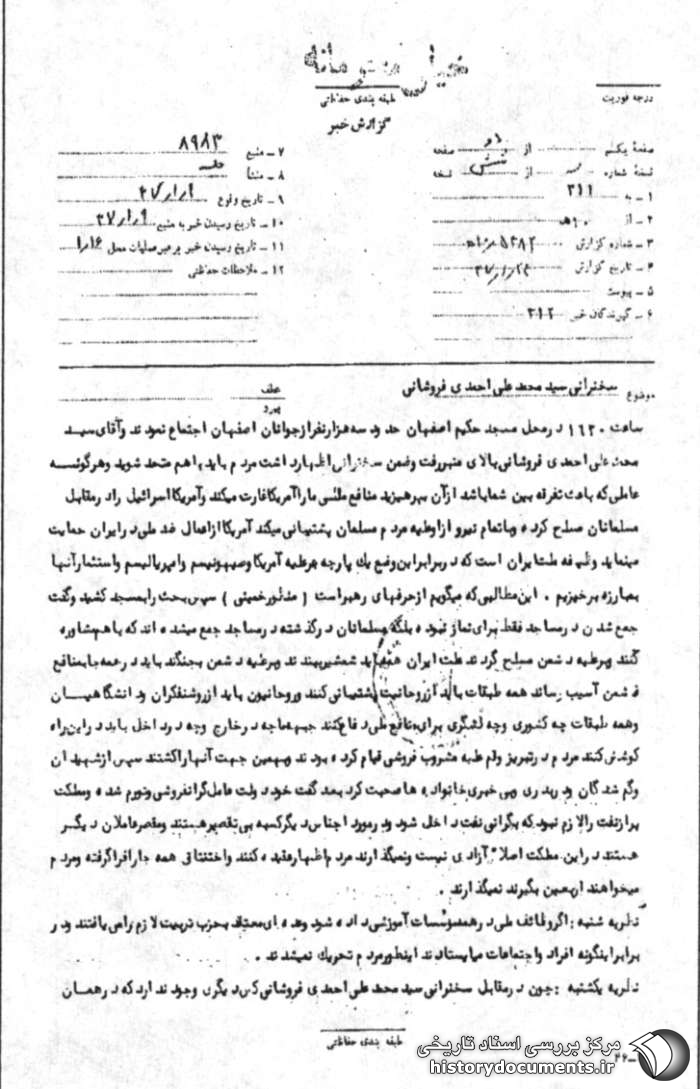 خیلی محرمانه
طبقه بندی حفاظتی
گزارش خبر
درجه فوریت
صفحهٔ یکم از دو صفحه
نسخهٔ شماره از شش نسخه
۱ ـ به ۳۱۲
۲ ـ از ۱۰ ه‍
۳ ـ شماره گزارش
۴ ـ تاریخ گزارش
۵ ـ پیوست
۶ ـ گیرندگان خبر ۳۱۲
۷ ـ منبع ۸۹۸۳
۸ ـ منشأ
۹ ـ تاریخ وقوع ۳۷/۱/۹
۱۰ ـ تاریخ رسیدن خبر به منبع ۳۷/۱/۹
۱۱ ـ تاریخ رسیدن خبر به رهبر عملیات محل
۱۲ ـ ملاحظات حفاظتی
موضوع سخنرانی سید محمد علی احمدی فروشانی
عطف
پیرو
ساعت ۱۶۳۰ در محل مسجد حکیم اصفهان حدود سه هزار نفر از جوانان اصفهان اجتماع نمودند و آقای سید
محمد علی احمدی فروشانی بالای منبر رفت و ضمن سخنرانی اظهار داشت مردم باید باهم متحد شوید و هرگونه
عاملی که باعث تفرقه بین شما باشد از آن بپرهیزید منافع ملی ما را آمریکا غارت میکند و آمریکا اسرائیل را در مقابل
مسلمانان مسلح کرده و با تمام نیرو از او علیه مردم مسلمان پشتیبانی میکند آمریکا از اعمال ضد ملی در ایران حمایت
مینماید وظیفه ملت ایران است که در برابر این وضع یک پارچه بر علیه آمریکا و صهیونیسم و امپریالیسم و استثمار آنها
بمبارزه برخیزیم . این مطالبی که میگویم از حرفهای رهبر است ( منظور خمینی ) سپس بحث را بمسجد کشید و گفت
جمع شدن در مساجد فقط برای نماز نبوده بلکه مسلمانان در گذشته در مساجد جمع میشده اند که باهم مشاوره
کنند و بر علیه دشمن مسلح گردند ملت ایران همه باید شمشیر ببندند و بر علیه دشمن بجنگند باید در همه جا بمنافع
دشمن آسیب رساند همه طبقات باید از روحانیت پشتیبانی کنند و روحانیون باید از روشنفکران و دانشگاهیان
و همه طبقات چه کشوری و چه لشگری برای منافع ملی دفاع کنند جبهه ما چه در خارج و چه در داخل باید در این راه
کوشش کنند مردم در تبریز و قم علیه مشروب فروشی قیام کرده بودند و بهمین جهت آنها را کشتند سپس از شهیدان
و گم شدگان و دربدری و بی خبری خانواده ها صحبت کرد بعد گفت خود دولت عامل گرانفروشی و تورم شده و مملکت
پر از نفت را لازم نمود که بگرانی نفت داخل شود و در مورد اجناس دیگر کسبه بی تقصیر هستند و مقصر عاملان دیگر
هستند در این مملکت اصلاً آزادی نیست و نمیگذارند مردم اظهار عقیده کنند و اختناق همه جا را فرا گرفته و مردم
میخواهند اربعین بگیرند نمیگذارند .
نظریه شنبه : اگر وظائف ملی در همه مؤسسات آموزشی داده شود و عده ای معتقد بحزب تربیت لازم را می یافتند و در
برابر اینگونه افراد و اجتماعات میایستادند اینطور مردم تحریک نمیشدند .
نظریه یکشنبه : چون در مقابل سخنرانی سید محمد علی احمدی فروشانی کس دیگری وجود ندارد که در همان
طبقه بندی حفاظتی
مرکز بررسی اسناد تاریخی
historydocuments.ir